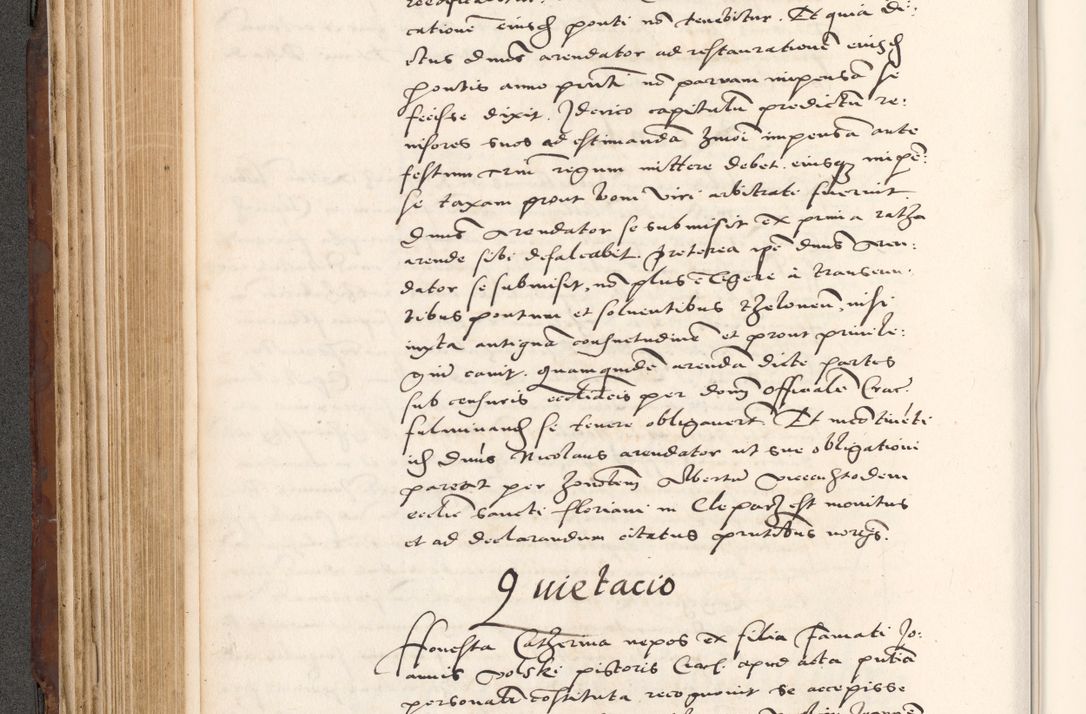 cationem eiusdem ponti non tenebitur. Et quia di-
ctus dnus arendator ad restaurationem eiusdem
pontis anno pnti non parvam impensam se
fecisse dixit. Iderico capitulum predictum re-
visores suos ad estimandam hmoi impensam ante
festum trium regum mittere debet. eiusq impen-
se taxam prout boni viri arbitrati fuerint
dnus arendator se submisit ex prima ratha
arende sibi defalcabit. Preterea ipse dnus aren-
dator se submisit, non plus exigere à transeun-
tibus pontem et solventibus theloneum, nisi
iuxta antiquam consuetudinem et prout privile-
gium cavit. quamquidem arendam dicte partes
sub censuris ecclesiasticis per dominum Officialem Crac.
fulminandis se tenere obligaverunt. Et
idem dnus Nicolaus arendator ut sue obligationi
pareat per honorabilem Albertum
ecclesie Sancti Floriani in Cleparz est monitus
et ad declarandum citatus
Quietacio
Honesta Catherina nepos ex filia Famati Jo-
annis Polski pistoris Crac. apud acta
personaliter constituta recognovit se accepisse